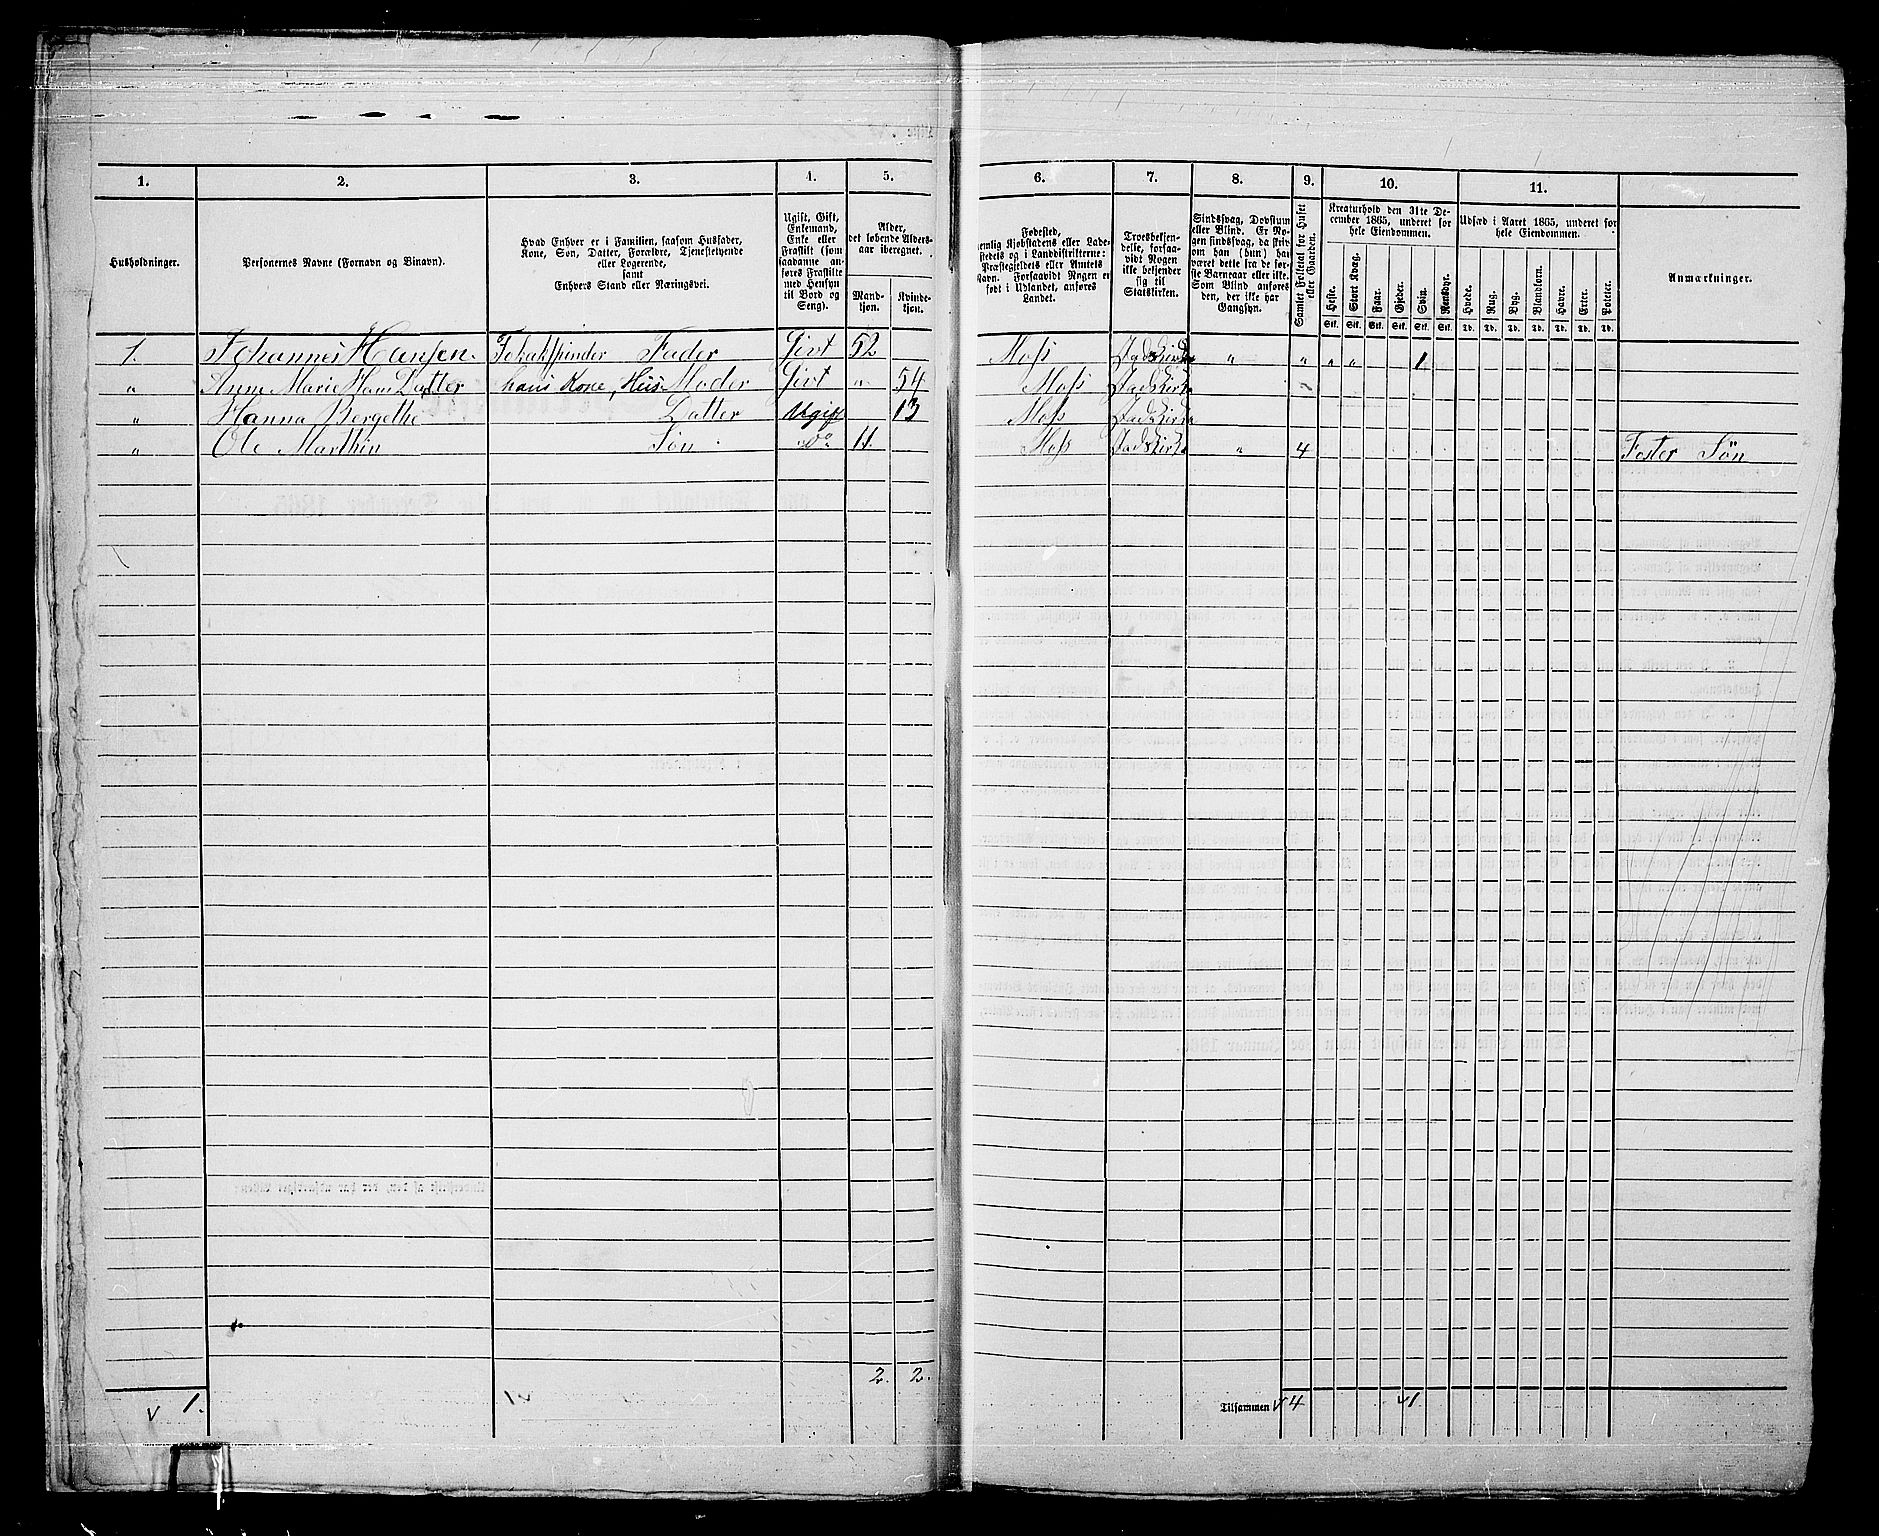 1. 2. 3. 4. 5. 6. 7. 8. 9. 10. 11.
Husholdninger.
Personernes Navne (Fornavn og Binavn).
Hvad Enhver er i Familien, saasom Husfader,
Kone, Søn, Datter, Forældre, Tjenestetyende
eller Logerende,
samt
Enhvers Stand eller Næringsvei.
Ugift, Gift,
Enkemand,
Enke eller
Fraskilt (som
saadanne anføres Fraskilte
med Hensyn
til Bord og
Seng).
Alder,
det løbende Alders-
aar iberegnet.
Mand-
kjøn.
Kvinde-
kjøn.
Fødested,
nemlig Kjøbstadens eller Lade-
stedets og i Landdistrikterne:
Præstegjeldets eller Amtets
Navn. Forsaavidt Nogen er
født i Udlandet, anføres
Landet.
Troesbekjen-
delse, forsaa-
vidt Nogen
ikke bekjender
sig til
Statskirken.
Sindssvag, Døvstum
eller Blind. Er No-
gen sindssvag, da skrives
om han (hun) har
været dette fra de før-
ste Barneaar eller ikke.
Som Blind anføres
den, der ikke har
Gangsyn.
Samlet Folketal for Huset
eller Gaarden.
Kreaturhold den 31te De-
cember 1865, underet for
hele Eiendommen.
Heste. Stort Kvæg. Faar. Gjeder. Svin. Rensdyr.
Stk. Stk. Stk. Stk. Stk. Stk.
Udsæd i Aaret 1865, underet for
hele Eiendommen.
Hvede. Rug. Byg. Blandkorn. Havre. Erter. Poteter.
Td. Td. Td. Td. Td. Td. Td.
Anmærkninger.
1. Johannes Hansen Tobakspinder Fader Givt 52 Moss " " " " 1
" Anne Marie Hans Datter hans Kone, Hus Moder Givt " 54 Moss
" Hanna Bergethe Datter Ugift 13 Moss
" Ole Marthin Søn Do 11. Moss " 4 Foster Søn
2. 2.
v 1. v1 Tilsammen v 4 v1